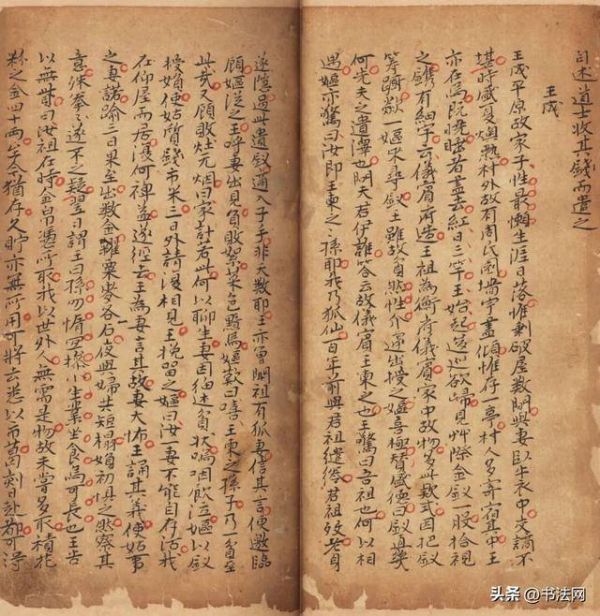 司述道士收其錢而遣之
王成
王成平原故家子性最懶生涯日落惟剩破屋數間與妻臥牛衣中交謫不
堪時盛夏燠熱村外故有周氏園墻宇盡傾惟存一亭村人多寄宿其中王
亦在焉既曉睡者盡去紅日三竿王始起逡巡欲歸見艸際金釵一股拾視
之鐫有細字云儀賓府造王祖為衡府儀賓家中故物多此款式因把釵
躊躇欻一嫗來尋釵王雖故貧然性介遽出授之嫗喜極贊盛德曰釵直幾
何先夫之遺澤也問夫君伊誰答云故儀賓王柬之也王驚曰吾祖也何以相
遇嫗亦驚曰汝即王柬之之孫耶我乃狐仙百年前與君祖繾綣君祖歿老身
遂隱過此遺釵適入子手非天數耶王亦曾聞祖有狐妻信其言便邀臨
顧嫗從之王呼妻出見負敗絮菜色黯焉嫗歎曰嘻王柬之孫子乃一貧至
此哉又顧敗灶無烟曰家計若此何以聊生妻因細述貧狀嗚咽飲泣嫗以釵
授婦使姑質錢市米三日外請復相見王挽留之嫗曰汝一妻不能自存活我
在仰屋而居復何裨益遂徑去王為妻言其故妻大怖王誦其義使姑事
之妻諾踰三日果至出數金糴粟麥各石夜與婦共短榻婦初懼之然察其
意殊拳拳遂不之疑翌日謂王曰孫勿惰宜操小生業坐食烏可長也王告
以無貲曰汝祖在時金帛憑所取我以世外人無需是物故未嘗多取積花
粉之金四十兩至今猶存久貯亦無所用可將去悉以市葛刻日赴都可得
头条 @书法网